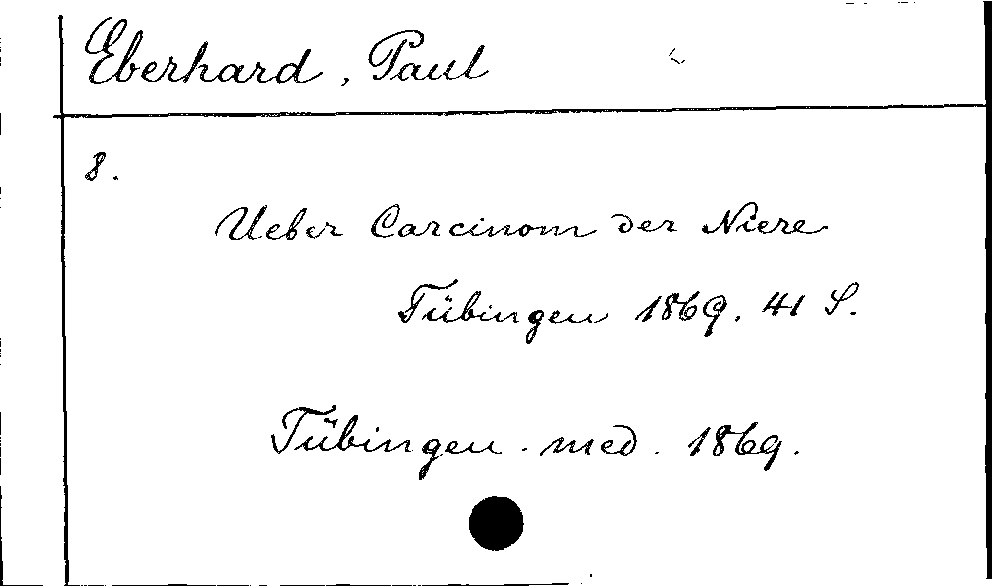 Eberhard, Paul
8.
Ueber Carcinom der Niere
Tübingen 1869. 41 S.
Tübingen. med. 1869.